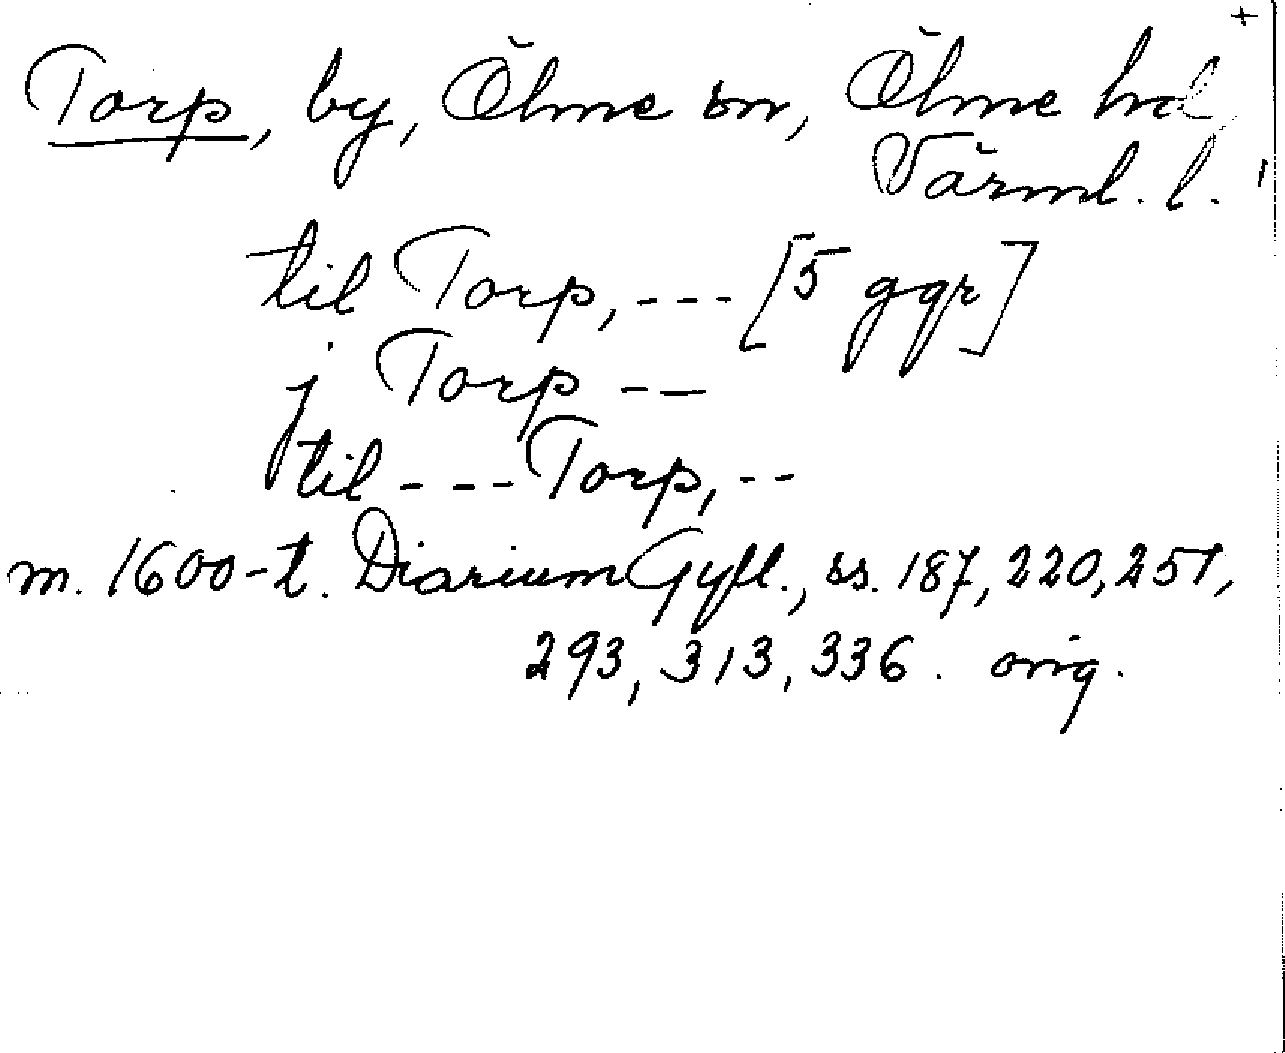 +
Torp, by, Ölme sn, Ölme hd,
Värml. l.
til Torp, --- [5 ggr]
j Torp --
til --- Torp, --
m. 1600-t. Diarium Gyll., ss. 187, 220, 251,
293, 313, 336. orig.